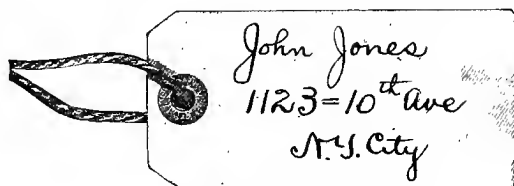 John Jones
1123=10th Ave
N.Y. City